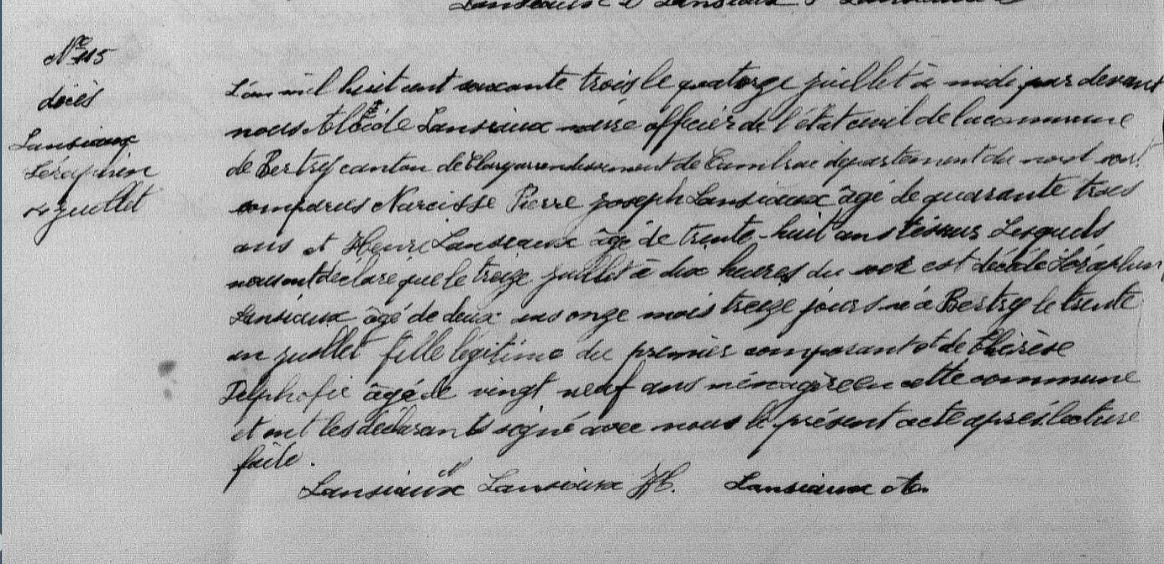 Lansiaux
Nº 115
décès
Lansiaux
Séraphin
14 juillet
L'an mil huit cent soixante trois le quatorze juillet à midi par devant
nous Alcide Lansiaux maire officier de l'état civil de la commune
de Bertry canton de Clary arrondissement de Cambrai département du nord sont
comparus Narcisse Pierre joseph Lansiaux âgé de quarante trois
ans et Henri Lansiaux âgé de trente-huit ans Lesquels
nous ont déclaré que le treize juillet à dix heures du soir est décédé Séraphin
Lansiaux âgé de deux ans onze mois treize jours né à Bertry le trente
un juillet fille légitime du premier comparant et de Thérèse
âgée de vingt neuf ans ménagère en cette commune
et ont les déclarants signé avec nous le présent acte après lecture
faite.
Lansiaux N Lansiaux H. Lansiaux A.